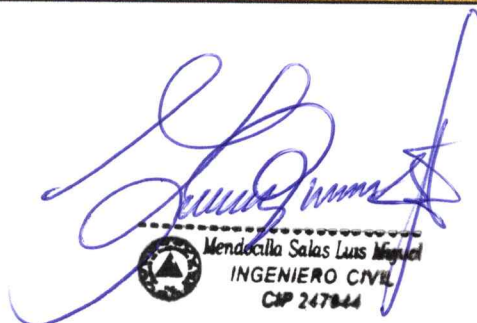 Mendocilla Salas Luis Miguel
INGENIERO CIVIL
CIP 247844